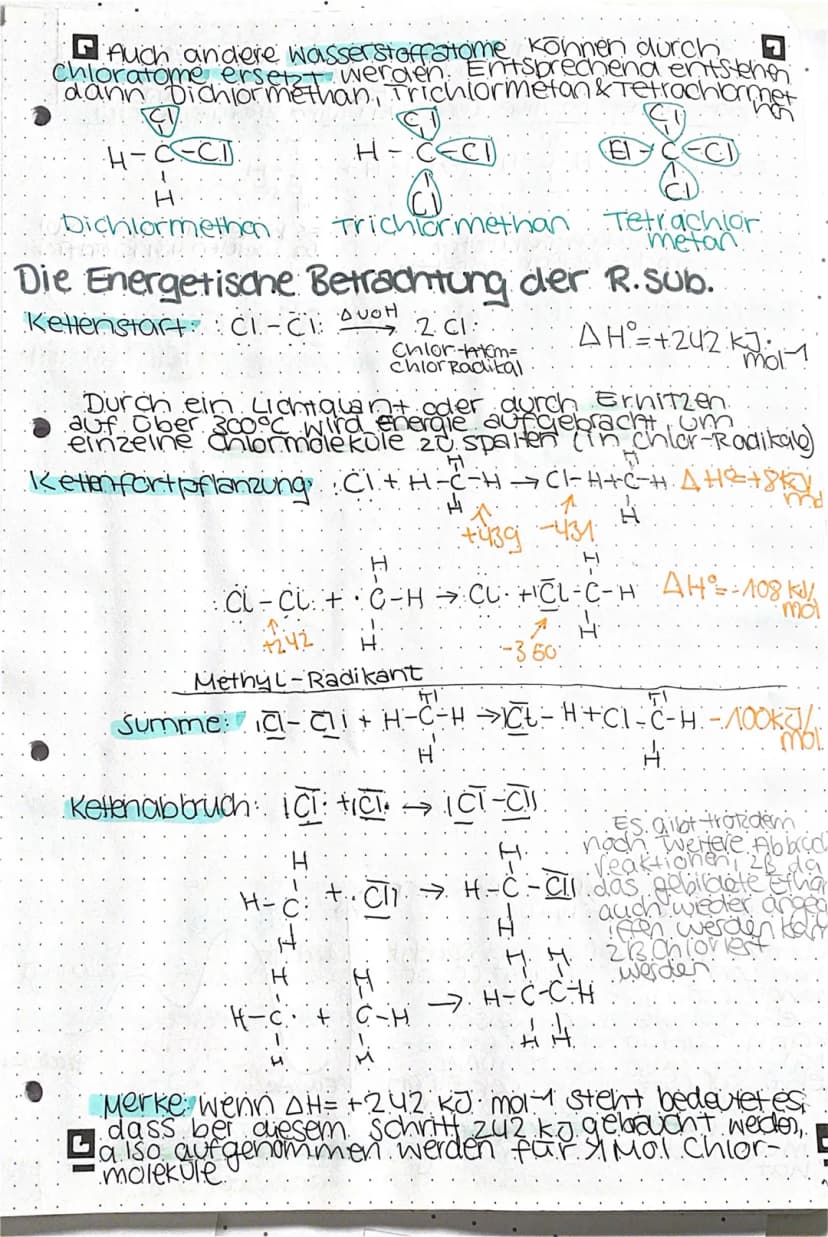 Auch andere Wasserstoffatome können durch
Chloratome ersetzt werden. Entsprechend entstehen
dann Dichlormethan, Trichlormetan & Tetrachlormet
han
Cl Cl Cl
H-C-Cl H-C-Cl Cl-C-Cl
H Cl Cl
Dichlormethan Trichlormethan Tetrachlor
metan
Die Energetische Betrachtung der R.Sub.
Kettenstart: Cl-Cl: → 2 Cl· ΔH°=+242 kJ·
mol-1
Chlor-Atom=
chlorRadikal
Durch ein Lichtquant oder durch Erhitzen
auf über 300°C wird energie aufgebracht, um
einzelne Chlormoleküle zu spalten (in Chlor-Radikale)
H H
Kettenfortpflanzung: :Cl + H-C-H → Cl-H+C-H ΔH°=+8KJ/
mol
H H
+439 -431
H H
Cl-Cl: + ·C-H → CL· + |Cl-C-H ΔH°=-108 kJ/
mol
H H
+242 -350
Methyl-Radikant
H H
Summe: |Cl-Cl| + H-C-H → |Cl-H+Cl-C-H -100KJ/
mol
H H
Kettenabbruch: |Cl· + |Cl· → |Cl-Cl|
H H
H-C· + ·Cl| → H-C-Cl|
H H
H H H H
H-C· + C-H → H-C-C-H
H H H H
Es gibt trotzdem
noch weitere Abbruch
reaktionen, zB da
das gebildete Ethan
auch wieder angeg
iffen werden kann
zB Chloriert
werden
Merke: wenn ΔH= +242 KJ mol-1 steht bedeutet es,
dass bei diesem Schritt 242 kJ gebraucht werden,
also aufgenommen werden für 1 Mol Chlor-
moleküle.